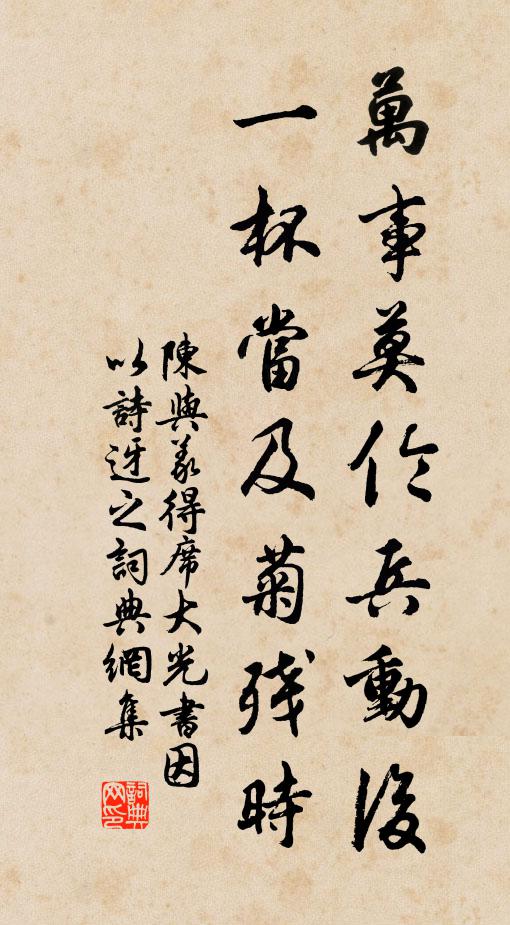 萬事莫論兵動後
一杯當及菊残時
陳與義得席大光書因
以詩迓之詞典網集
詞典
网印